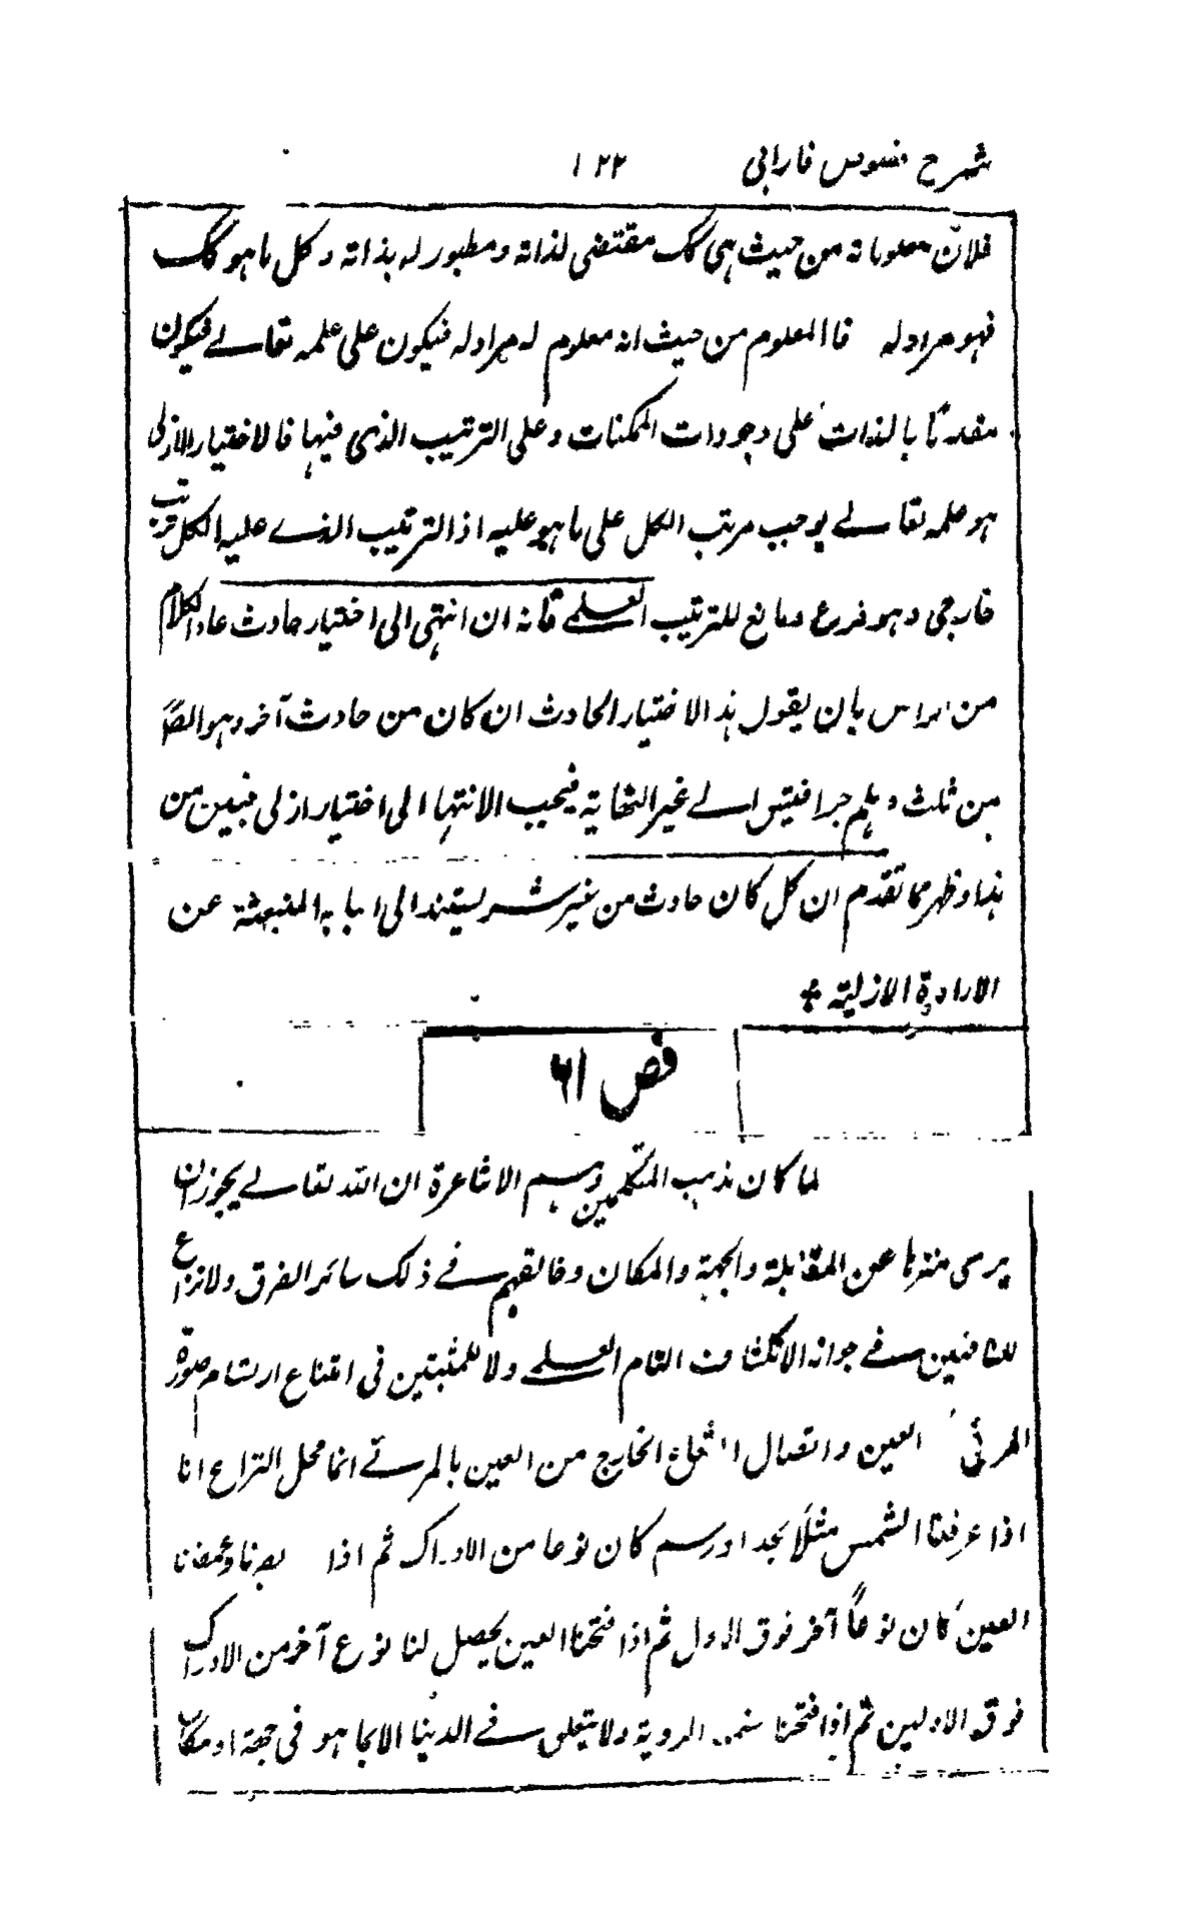 شرح فصوص فارابی ۱۲۲
فلان معلوماته من حيث هی کک مقتضی لذاته ومطبور له بذاته وکل ما هو کک
فهو مراد له فالمعلوم من حيث انه معلوم له مراد له فيكون علی علمه تعالے فیکون
متقدما بالذات علی وجودات الممکنات وعلی الترتيب الذی فیها فالاختيار الازلی
هو علمه تعالے یوجب مرتب الکل علی ما هو عليه اذ الترتيب الذے عليه الکل ترتیب
خارجی وهو فرع ومانع للترتيب العلمے فانه ان انتهی الی اختيار حادث عاد الکلام
من الراس بان يقول هذا الاختيار الحادث ان کان من حادث آخر وهو ایضا
من ثلث وهلم جرا فیتس الے غیر النهاية فیجب الانتها الی اختیار ازلی فبین من
هذا وظهر مما تقدم ان کل کان حادث من خیر وشر یستند الی اسبابه المنبعثة عن
الارادة الازلیة
فص ۶۱
لما کان مذهب المتکلمین وهم الاشاعرة ان الله تعالے یجوز ان
یری منزها عن المقابلة والجهة والمکان وخالفهم فے ذلک سائر الفرق ولا نزاع
للنافین فے جوازه الانکشاف التام العلمے ولا للمثبتین فی امتناع ارتسام صورة
المرئی العین واتصال الشعاع الخارج من العین بالمرئے انما محل النزاع انا
اذا عرفنا الشمس مثلا بحد او رسم کان نوعا من الادراک ثم اذا بصرنا وغمضنا
العین کان نوعا آخر فوق الاول ثم اذا فتحنا العین یحصل لنا نوع آخر من الادراک
فوق الاولین ثم اذا فتحنا الرویة ولا یتعلق فے الدنیا الا بما هو فی جهة او مکان